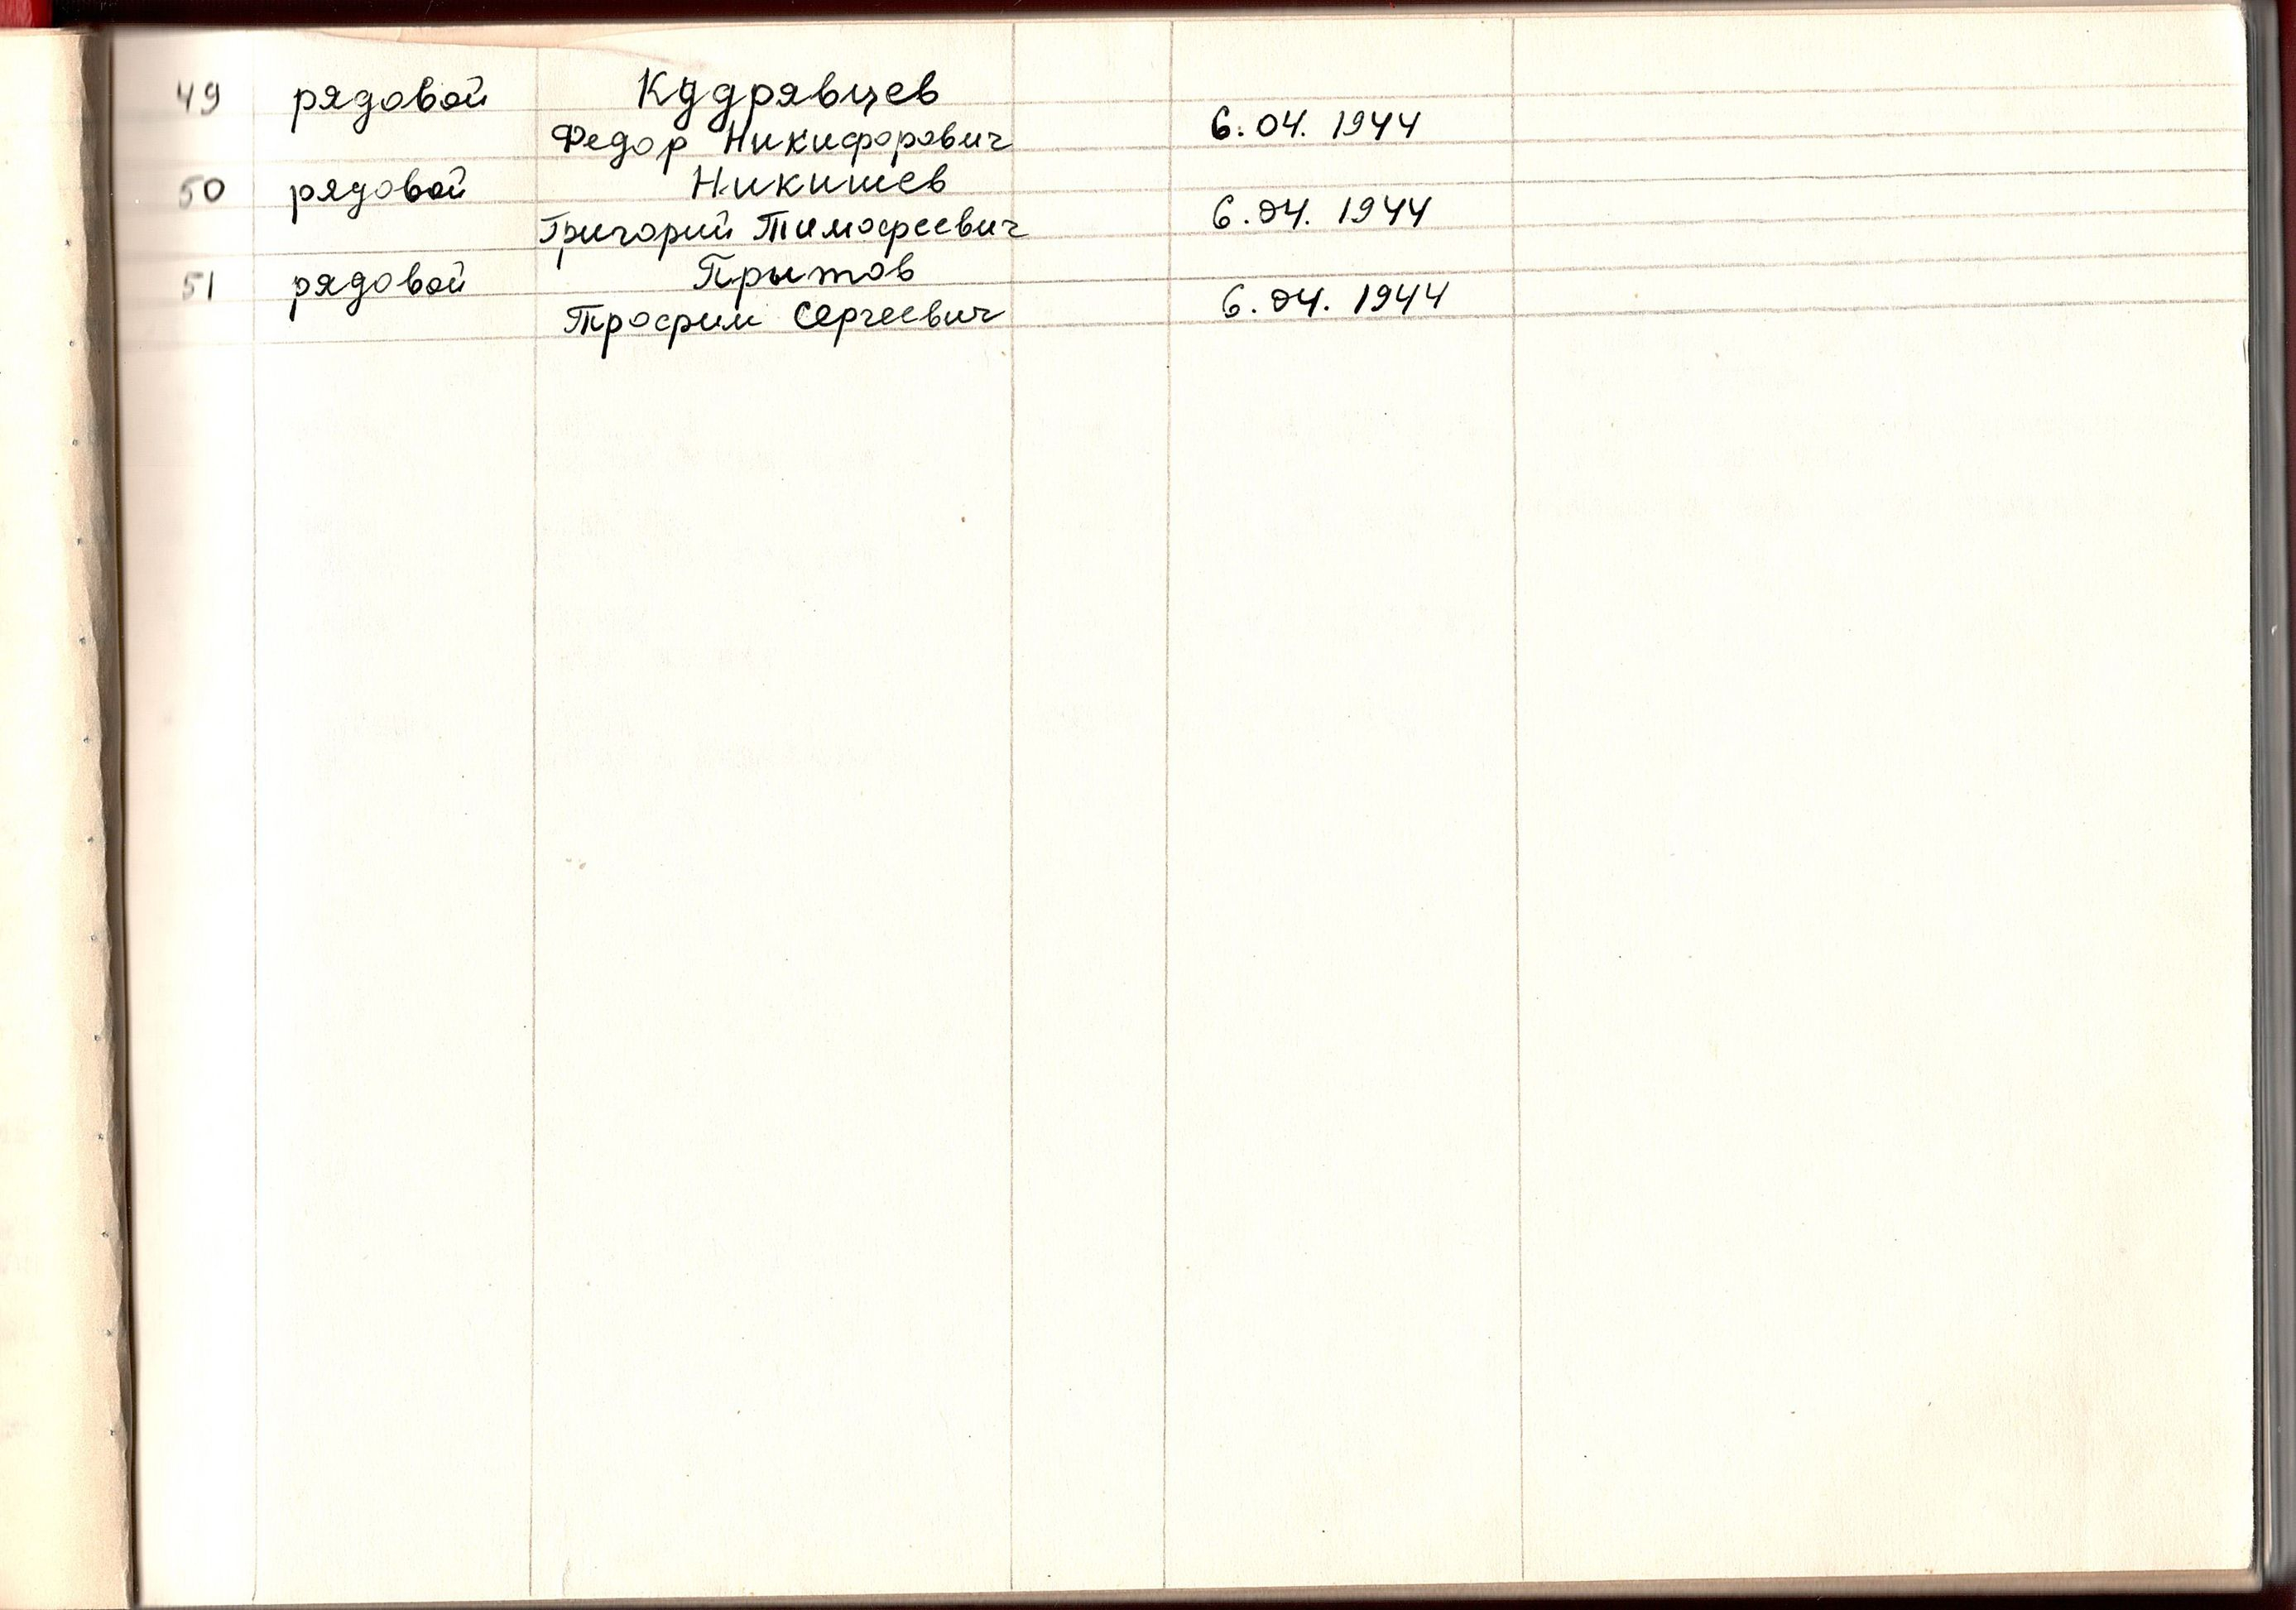 49 рядовой Кудрявцев
Федор Никифорович 6.04.1944
50 рядовой Никишев
Григорий Тимофеевич 6.04.1944
51 рядовой Прытов
Трофим Сергеевич 6.04.1944